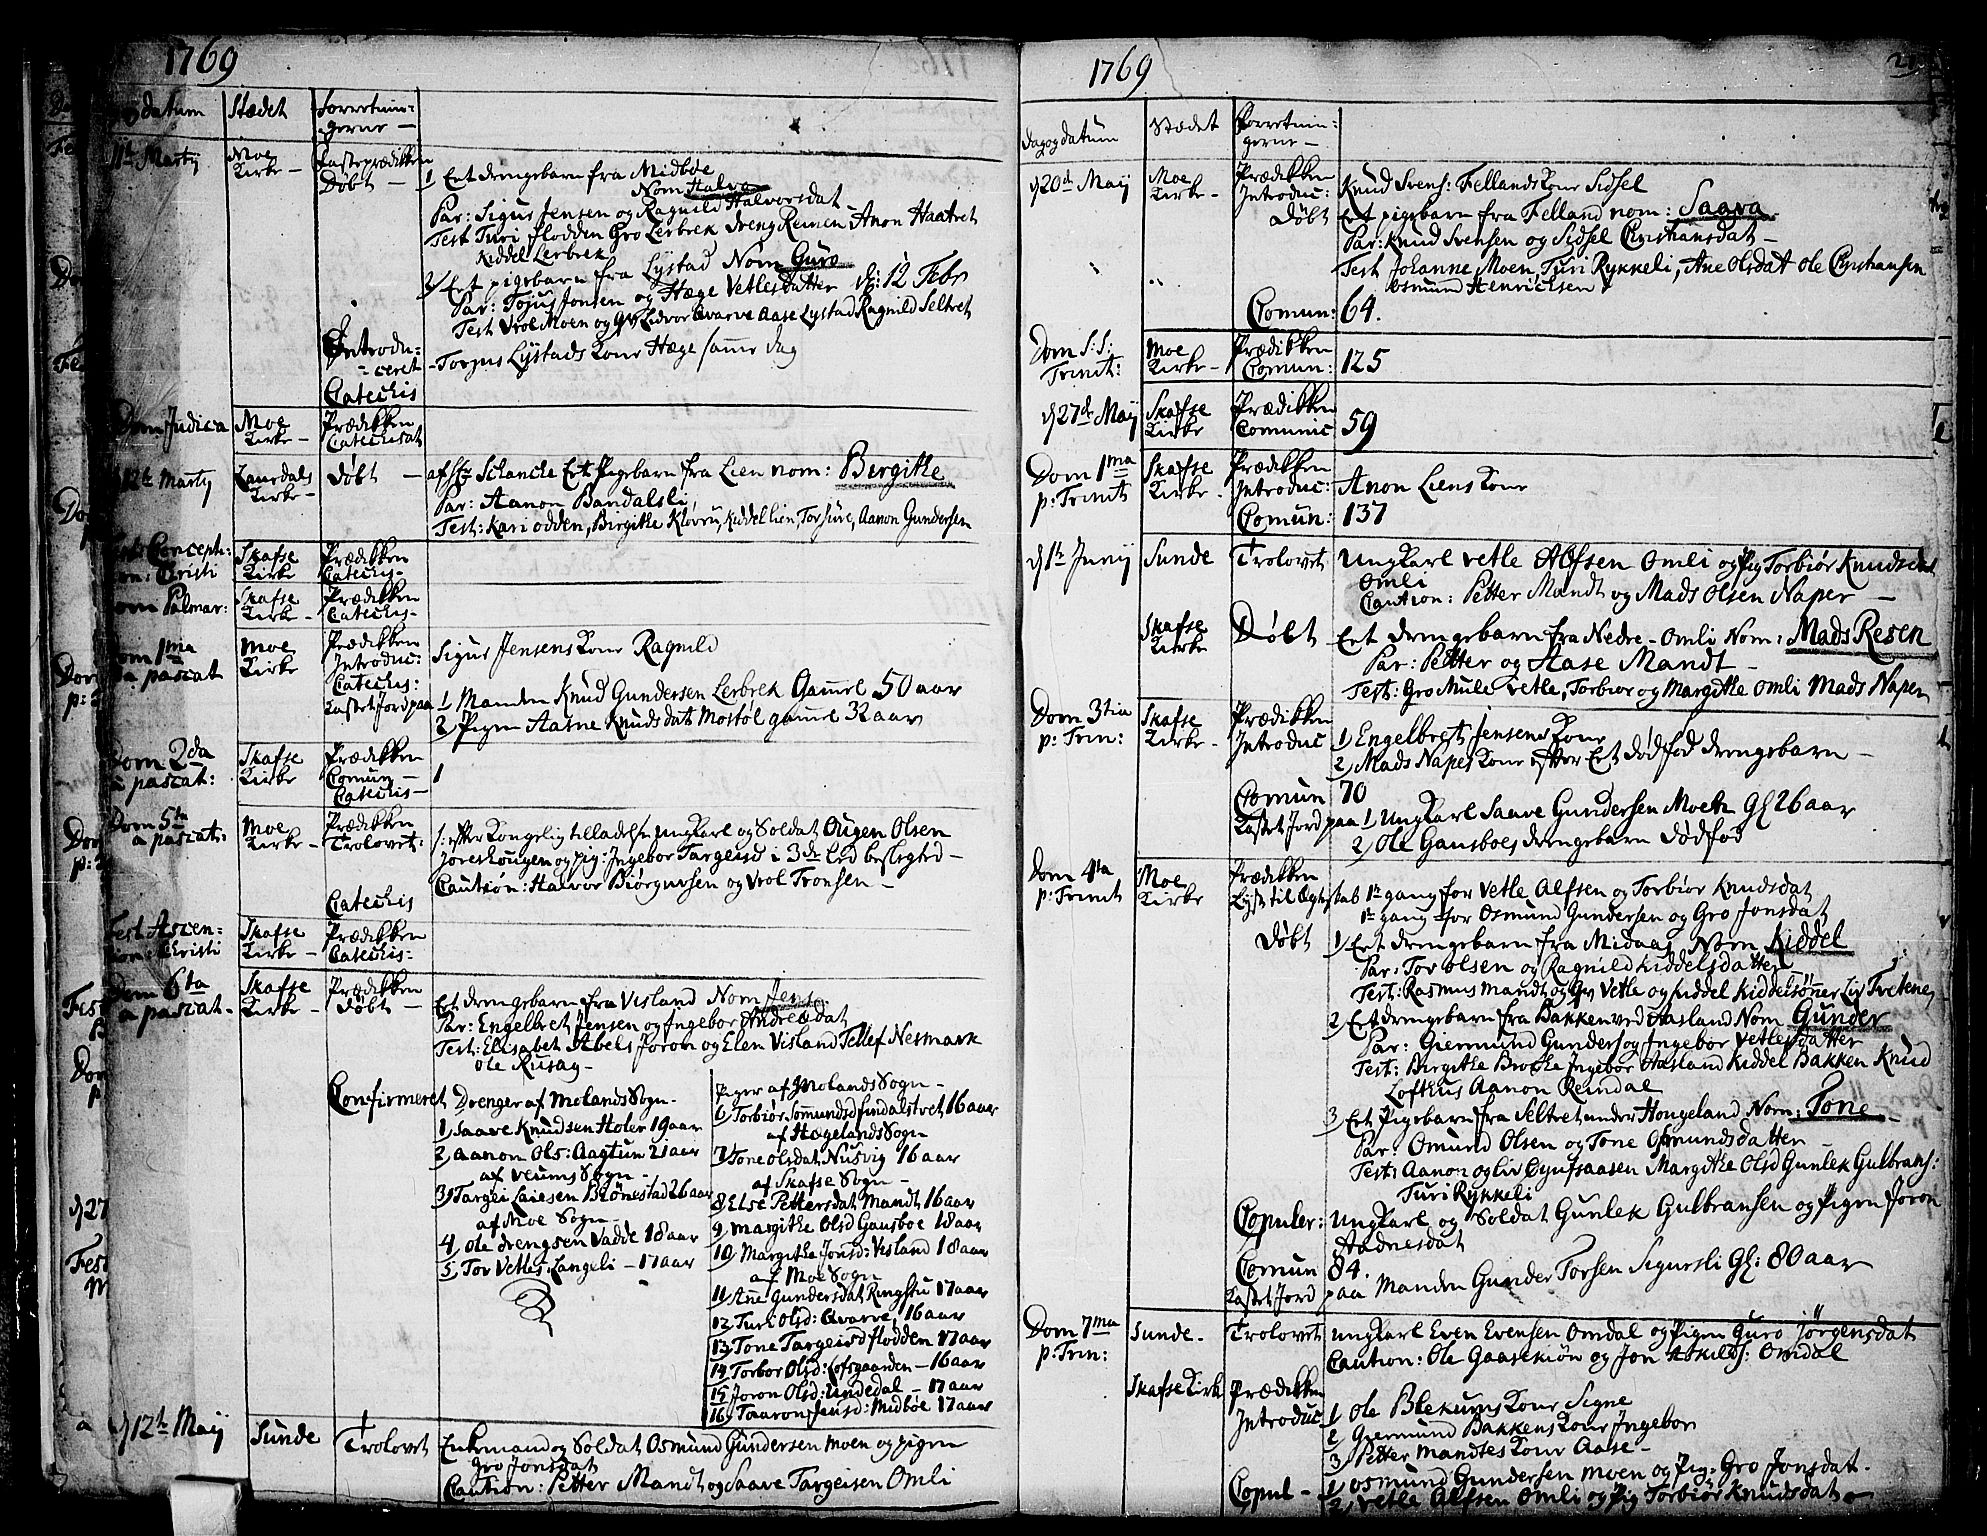 1769
og datum Stædet Forretnin-
gerne -
11te Martij Moe Kirke - Fasteprædiken
Døbt - 1 Eet drengebarn fra Midbøe
Nom Halvo
Par: Sigur Jensen og Ragnild Halvorsdat -
Test Turi flodden Gro Lerbrek dreng Reinen Anon Haatvet
Kiddel Lerbrek
2 Eet pigebarn fra Lystad Nom Guro
Par: Tojus Jonsen og Hæge Vetlesdatter d: 12 Febr
Test Vrol Moen og Gv Lidvor Qvarve Aase Lystad Ragnild Seltvet
Introdu-
ceret - Torjus Lystads Kone Hæge samme dag
Catechis
Dom Judica Moe Kirke - Prædikken
Catechisat
12te Martij Laurdals Kirke - Døbt - af Hr Schancke Eet Pigebarn fra Lien nom: Birgithe
Par: Aanon Bandalsli
Test: Kari odden, Birgithe Kløvru, Kiddel Lien, Tor Jure, Aanon Gundersen
Concept:
Christi Skafse Kirke Prædikken
Catechis-
Dom Palmar: Skafse Kirke - Prædikken
Catechis-
Dom 1ma
a pascat Moe Kirke Prædikken
Introduc: Sigur Jensens Kone Ragnild
Catechis:
Kastet Jord paa 1 Manden Knud Gundersen Lerbrek Gamel 50 aar
2 Pigen Aasne Knudsdat Mostøl gamel 32 aar
Dom 2da
a pascat: Skafse Kirke Prædikken
Comun - 1
Catechis -
Dom 5ta
a pascat: Moe Kirke - Prædikken
Trolovet: /: efter Kongelig tilladelse ungKarl og Soldat Ougen Olsen
Joreshougen og pig: Ingebor Targeisd i 3de Led beslegted -
Caution: Halvor Biørgufsen og Vrol Tronsen -
Catechis
Fest Ascen-
sione Christi Skafse Kirke - Prædikken
Catechis-
Dom 6ta
a pascat - Skafse Kirke - Prædikken
Døbt - Eet drengebarn fra Visland Nom Jens
Par: Engelbret Jensen og Ingebor Andresdat
Test: Elisabet Abels Joron og Elen Visland Tellef Nesmark
Ole Rusag -
Confirmeret Drenger af Molands Sogn -
1 Saave Knudsen Holer 19 aar
2 Aanon Ols: Aagtun 21 aar
af Veums Sogn -
3 Targei Laiesen Blønestad 26 aar
af Moe Sogn -
4 Ole drengsen Vadde 18 aar
5 Tor Vetles: Langeli - 17 aar
Piger af Molands Sogn -
6 Torbiør Sommundsd findalstvet 16 aar
af Hægelands Sogn
7 Tone Olsdat Nusvig 16 aar
af Skafse Sogn -
8 Else Pettersdat Mandt 16 aar
9 Margithe Olsd Gausboe 18 aar
10 Margithe Jonsd: Visland 18 aar
af Moe Sogn
11 Ane Gundersdat Ringstu 17 aar
12 Turi Olsd: Qvarve, 16 aar
13 Tone Targeisd flodden 17 aar
14 Torbor Olsd: Lofsgaarden - 16 aar
15 Joron Olsd: Undedal - 17 aar
16 Taaron Jensd: Midbøe 17 aar
d 12te Maij Sunde Trolovet Enkemand og Soldat Osmund Gundersen Moen og pigen
Gro Jonsdat
Caution: Petter Mandt og Saave Targeisen Omli
1769
Dag og datum Stædet Forretnin-
gerne -
d 20de Maij Moe Kirke - Prædikken
Introduc: Knud Svens: Fellands Kone Sidsel
Døbt Eet pigebarn fra Felland nom: Saava
Par: Knud Svensen og Sidsel Christiansdat -
Test Johanne Moen, Turi Rykkeli, Ane Olsdat Ole Christiansen
Osmund Henrichsen
Comun: 64.
Dom S: S:
Trinit: Moe Kirke - Prædikken
Comun: 125
d 27de Maij Skafse Kirke Prædikken
Comunic 59
Dom 1ma
p: Trinit Skafse Kirke - Prædikken
Introduc: Anon Liens Kone
Comun: 137
d 1te Junij Sunde Trolovet UngKarl Vetle Alfsen Omli og Pig Torbiør Knudsdat
Omli
Caution: Petter Mandt og Mads Olsen Naper -
Skafse Kirke Døbt Eet drengebarn fra Nedre-Omli Nom: Mads Resen
Par: Petter og Aase Mandt -
Test: Gro Mule Vetle, Torbior og Margithe Omli Mads Napen
Dom 3tia
p: Trin: Skafse Kirke - Prædikken
Introduc 1 Engelbret Jensens Kone
2 Mads Napes Kone efter Eet dødfød drengebarn -
Comun 70
Kastet Jord paa 1 UngKarl Saave Gundersen Moen Gl 26 aar
2 Ole Gausboes drengebarn dødfød
Dom 4ta
p: Trinit Moe Kirke Prædikken
Lyst til Ægteskab 1te gang for Vetle Alfsen og Torbiør Knudsdat
1te gang for Osmund Gundersen og Gro Jonsdat
Døbt 1 Eet drengebarn fra Midaas Nom Kiddel
Par: Tor Olsen og Ragnild Kiddelsdatter
Test: Rasmus Mandt og Gv Vetle og Kiddel Kiddelsønner Liv Tvetene
2 Eet drengebarn fra Bakken ved Aasland Nom Gunder
Par: Giermund Gunders og Ingebor Vetlesdatter
Test: Birgithe Brocke Ingebor Aasland Kiddel Bakken Knud
Lofthus Aanon Reindal
3 Eet Pigebarn fra Seltvet under Hougeland Nom: Tone -
Par: Omund Olsen og Tone Osmundsdatter -
Test: Aanon og Liv Gyufsaasen Margithe Olsd Gunlek Gulbrans:
Turi Rykkeli
Copuler: ungKarl og Soldat Gunlek Gulbransen og Pigen Joron
Aadnesdat
Comun 84.
Kastet Jord paa Manden Gunder Torsen Sigursli Gl: 80 aar
Dom 7ma
p: Trin: Sunde - Trolovet ungKarl Even Evensen Omdal og Pigen Guro Jörgensdat
Caution: Ole Gaasekiøn og Jon Askilds: Omdal
Skafse Kirk Prædikken
Introduc 1 Ole Blekums Kone Signe
2 Giermund Bakkens Kone Ingebor
3 Petter Mandtes Kone Aase -
Copul - 1 Osmund Gundersen Moen og Pig: Gro Jonsdat -
2 Vetle Alfsen Omli og Pig Torbiør Knudsdat -